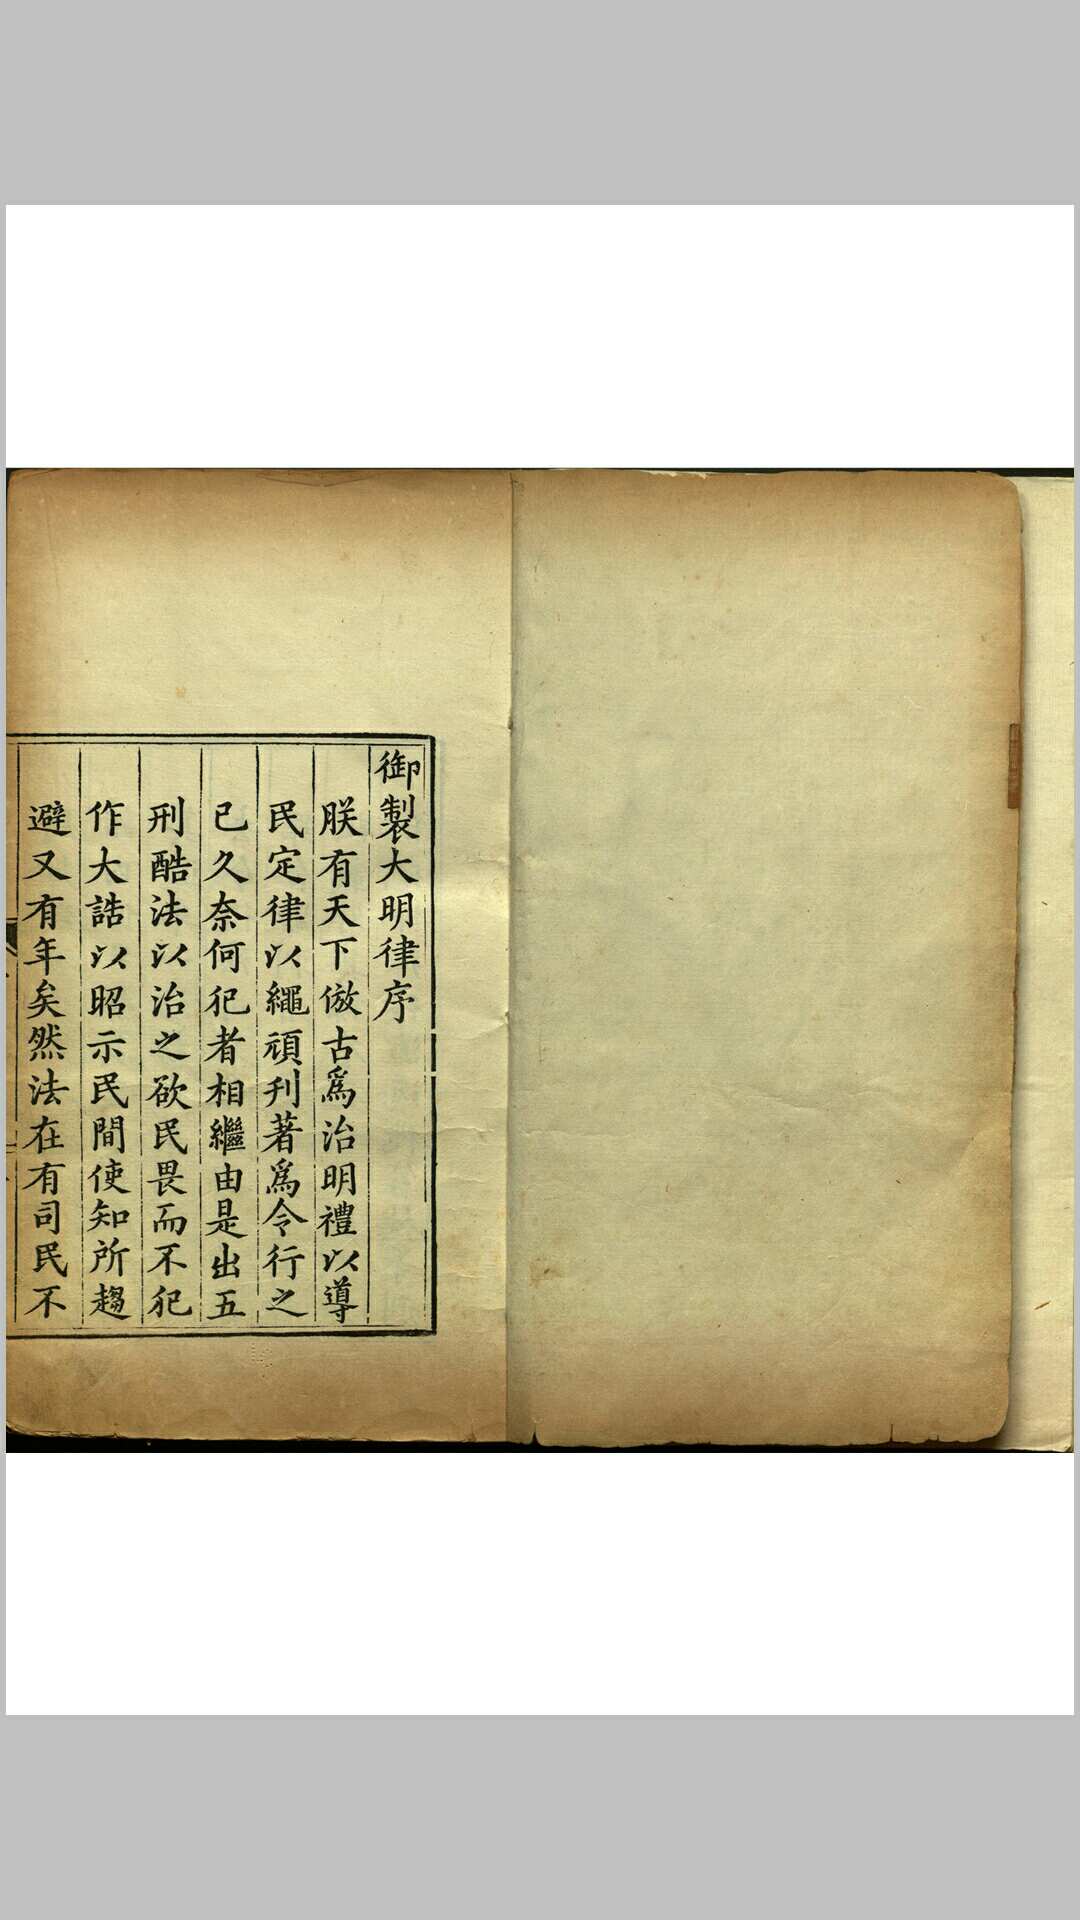 御製大明律序
朕有天下倣古爲治明禮以導
民定律以繩頑刋著爲令行之
已久奈何犯者相繼由是出五
刑酷法以治之欲民畏而不犯
作大誥以昭示民間使知所趨
避又有年矣然法在有司民不